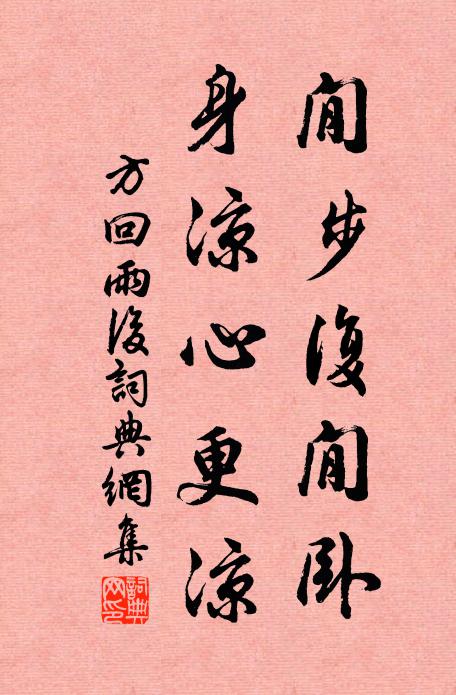 閒步復閒卧
身涼心更涼
方回雨後詞典網集
詞典網印